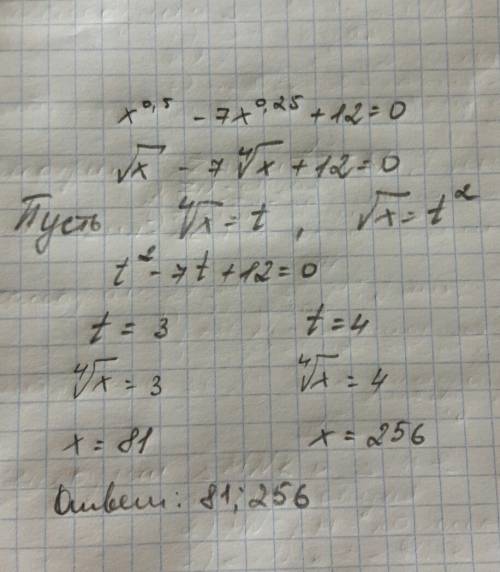 x^0,5 - 7x^0,25 + 12 = 0
√x - 7 ∜x + 12 = 0
Пусть ∜x = t, √x = t²
t² - 7t + 12 = 0
t = 3 t = 4
∜x = 3 ∜x = 4
x = 81 x = 256
Ответ: 81; 256